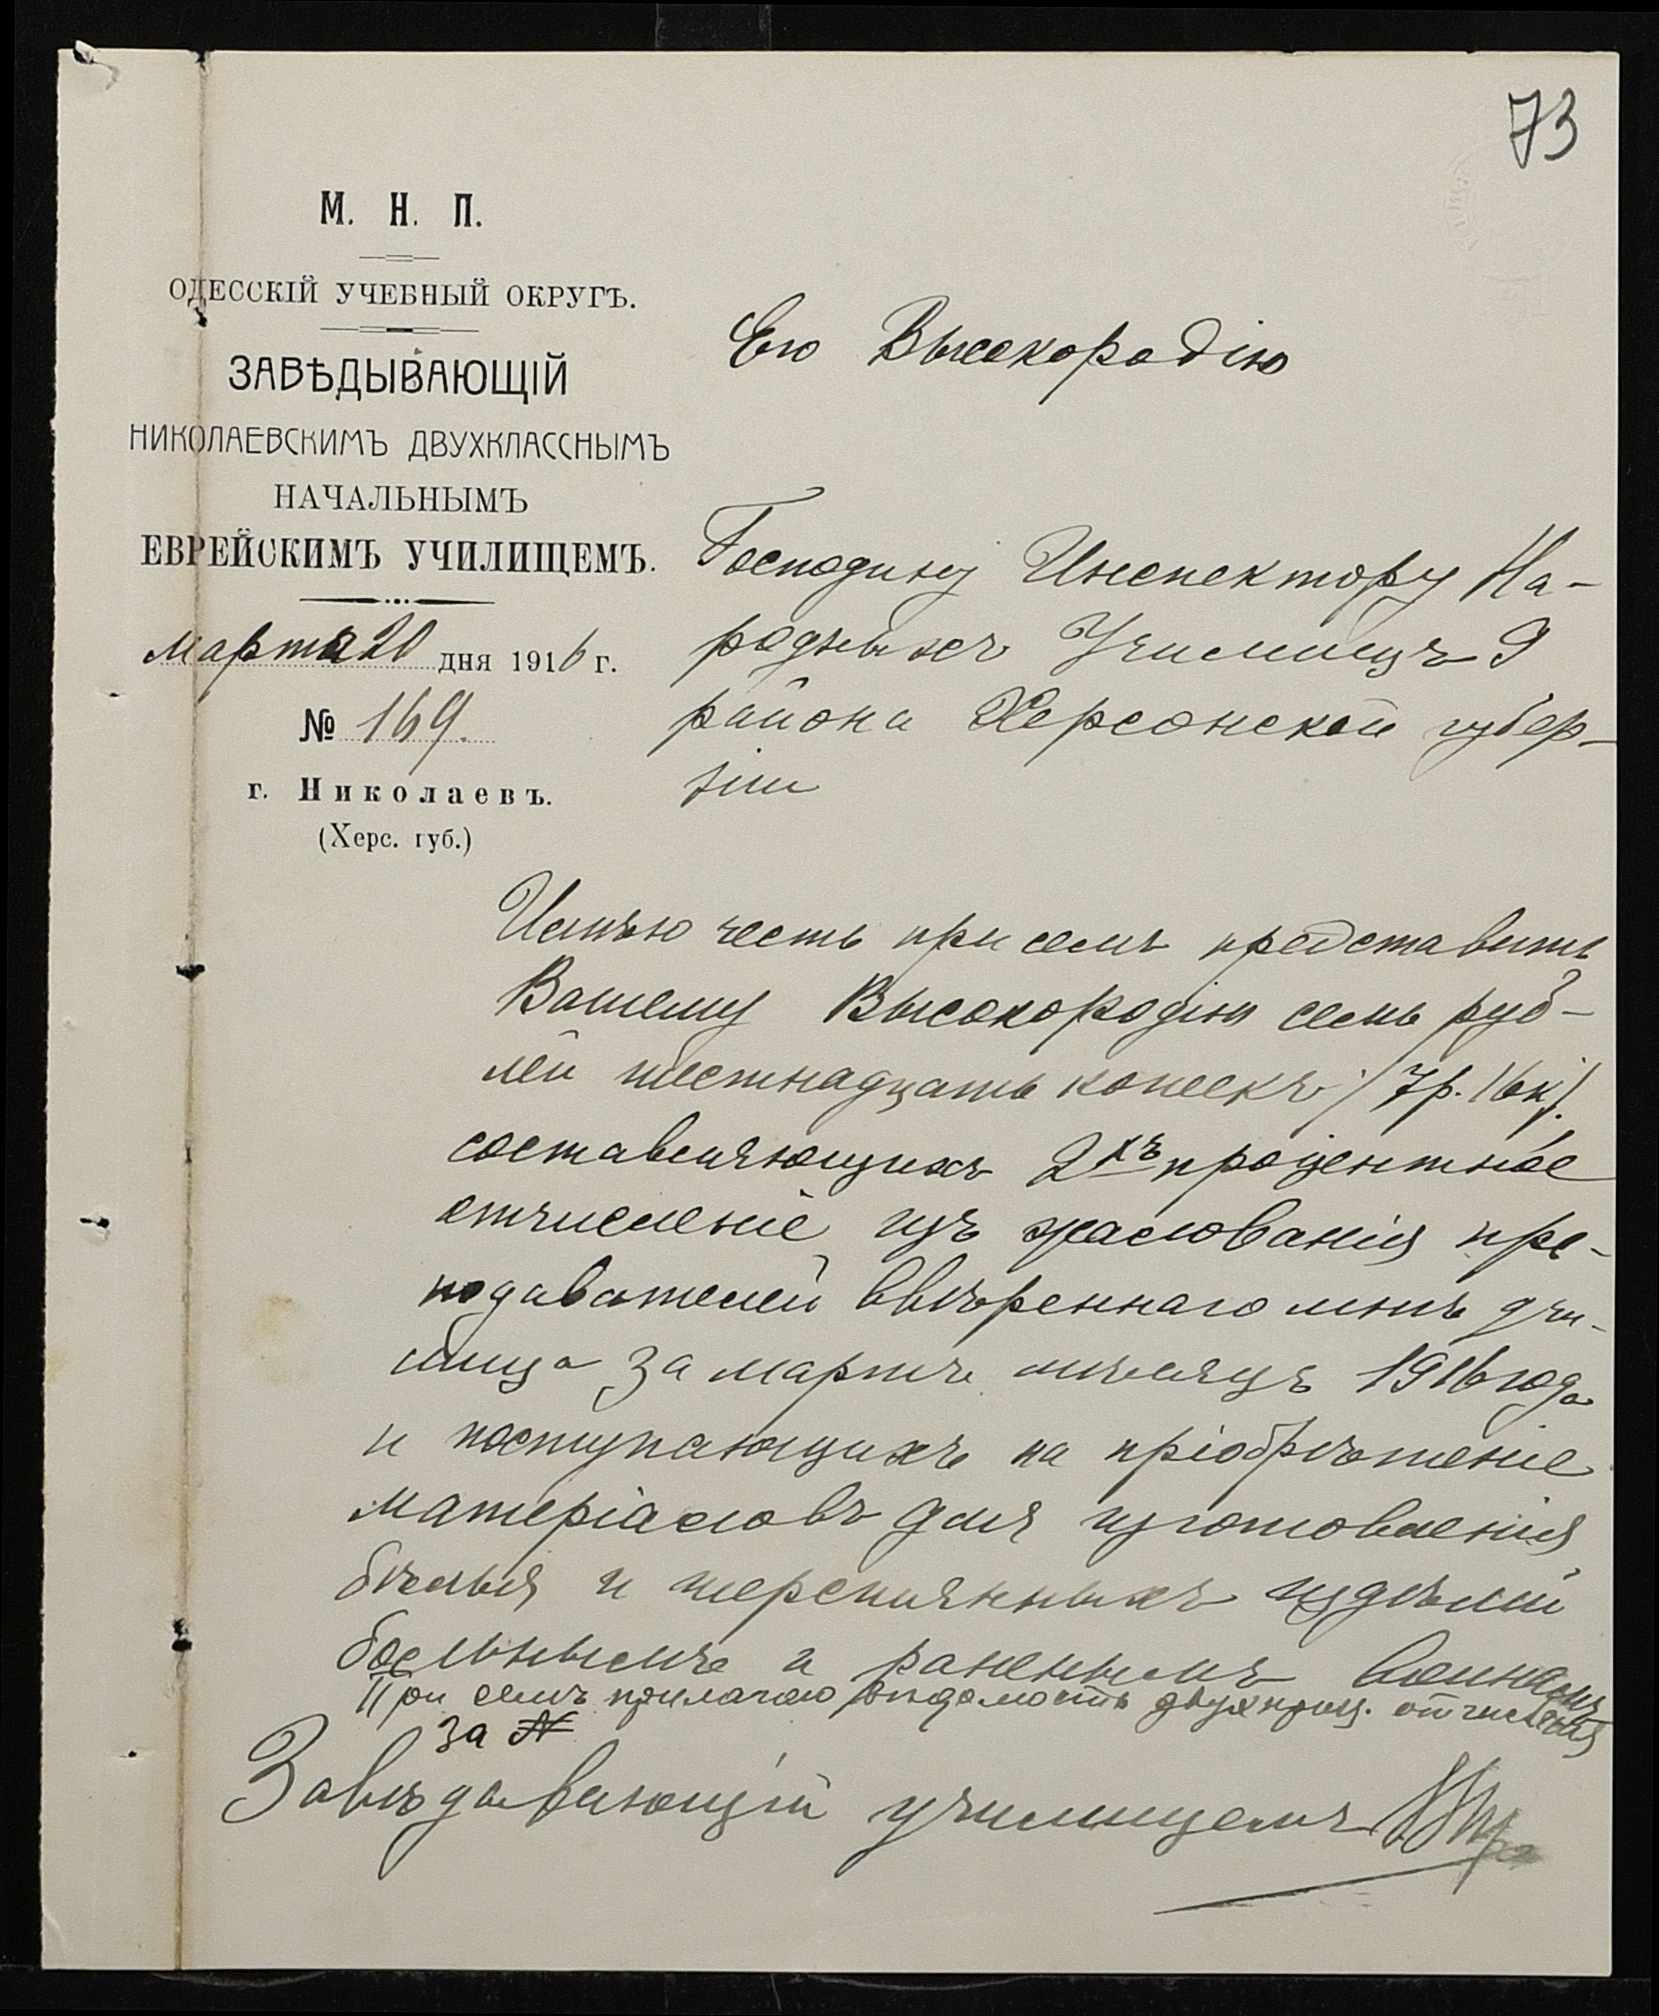 73
М. Н. П.
ОДЕССКІЙ УЧЕБНЫЙ ОКРУГЪ.
ЗАВѢДЫВАЮЩІЙ
НИКОЛАЕВСКИМЪ ДВУХКЛАССНЫМЪ
НАЧАЛЬНЫМЪ
ЕВРЕЙСКИМЪ УЧИЛИЩЕМЪ.
марта 20 дня 1916 г.
№ 169.
г. Николаевъ.
(Херс. губ.)
Его Высокородію
Господину Инспектору На-
родныхъ Училищъ 9
района Херсонской губер-
ніи
Имѣю честь при семъ представить
Вашему Высокородію семь руб-
лей шестнадцать копеекъ /7р. 16к/.
составляющихъ 2хъ процентное
отчисленіе изъ жалованія пре-
подавателей ввѣреннаго мнѣ учи-
лища за мартъ мѣсяцъ 1916 года
и поступающихъ на пріобрѣтеніе
матеріаловъ для изготовленія
бѣлья и шерстяныхъ издѣлій
больнымъ и раненымъ воинамъ
При семъ прилагаю вѣдомость двухпроц. отчисленія
за №
Завѣдывающій училищемъ